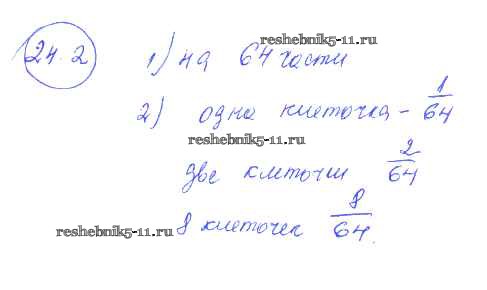 24.2
reshebnik5-11.ru
1) на 64 части
2) одна клеточка – 1/64
reshebnik5-11.ru
две клеточки 2/64
8 клеточек 8/64
reshebnik5-11.ru